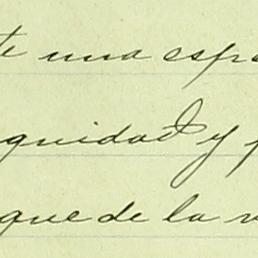 te una espe
guidad y p
que de la v